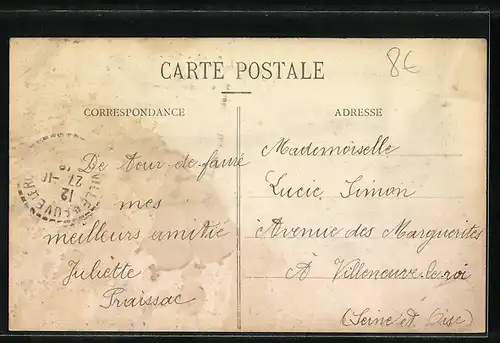 8€
CARTE POSTALE
CORRESPONDANCE
ADRESSE
De tour de fauré
mes
meilleurs amitié
Juliette
Praissac
Mademoiselle
Lucie Simon
Avenue des Marguerites
À Villeneuve-le-roi
(Seine et Oise)
12
27-10